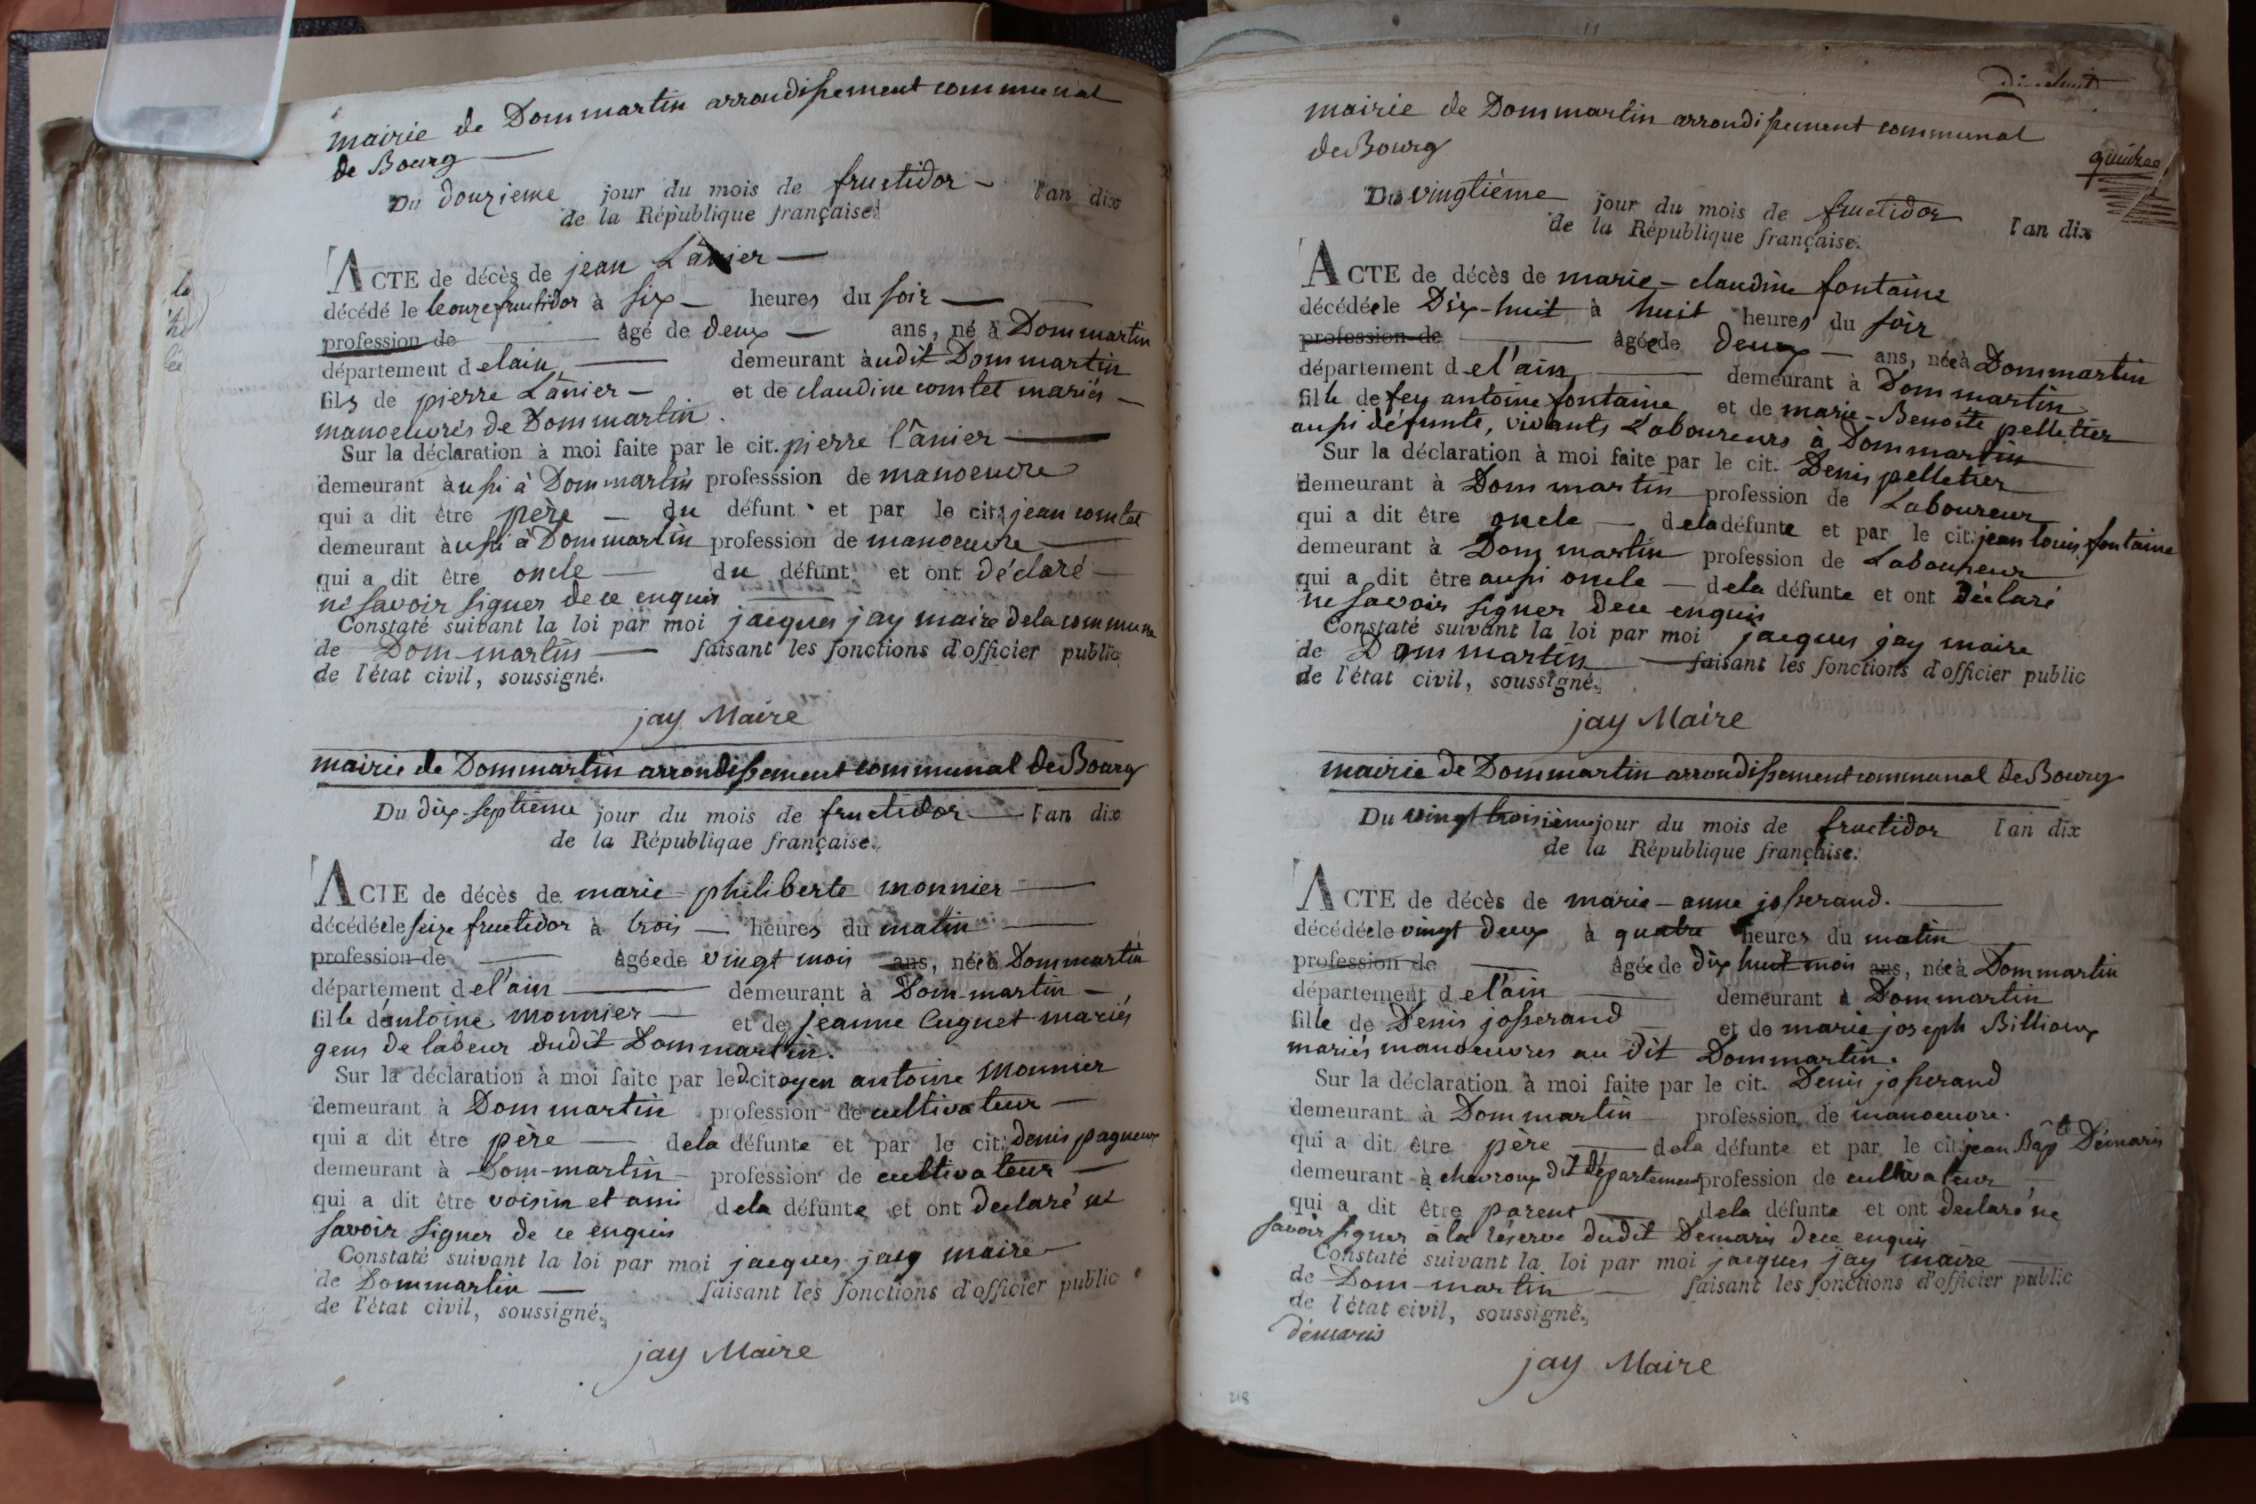 mairie de Dommartin arrondissement communal
de Bourg
Du douzieme jour du mois de fructidor l'an dix
de la République française.
ACTE de décès de jean Lânier
décédé le le onze fructidor à six heures du soir
profession de âgé de deux ans, né à Dommartin
département de lain, demeurant àudit Dommartin
fils de pierre Lânier et de claudine comtet mariés
manoeuvres de Dommartin.
Sur la déclaration à moi faite par le cit. pierre lânier
demeurant àussi à Dommartin professsion de manoeuvre
qui a dit être père du défunt et par le cit. jean comtet
demeurant àussi à Dommartin profession de manoeuvre
qui a dit être oncle du défunt et ont déclaré
ne savoir signer de ce enquis
Constaté suivant la loi par moi jacques jay maire dela commune
de Dom-martin faisant les fonctions d'officier public
de l'état civil, soussigné.
jay Maire
mairie de Dommartin arrondissement communal de Bourg
Du dix-septieme jour du mois de fructidor l'an dix
de la Républiqae française.
ACTE de décès de marie-philiberte monnier
décédée le seize fructidor à trois heures du matin
profession de âgée de vingt mois ans, née à Dommartin
département de l'ain demeurant à Dom-martin
fille dantoine monnier et de jeanne Cuguet mariés
gens de labeur dudit Dommartin.
Sur la déclaration à moi faite par le citoyen antoine Monnier
demeurant à Dommartin profession de cultivateur
qui a dit être père dela défunte et par le cit. denis pagneux
demeurant à Dom-martin profession de cultivateur
qui a dit être voisin et ami dela défunte et ont declaré ne
savoir signer de ce enquis
Constaté suivant la loi par moi jacques jay maire
de Dommartin faisant les fonctions d'officier public
de l'état civil, soussigné.
jay Maire
mairie de Dommartin arrondissement communal
de Bourg
Du vingtième jour du mois de fructidor l'an dix
de la République française.
ACTE de décès de marie-claudine fontaine
décédée le Dix-huit à huit heures du soir
profession de âgée de deux ans, née à Dommartin
département de l'ain demeurant à Dommartin
fille de feu antoine fontaine et de marie-Benoite pelletier
aussi défunte, vivants Laboureurs à Dommartin
Sur la déclaration à moi faite par le cit. Denis pelletier
demeurant à Dommartin profession de Laboureur
qui a dit être oncle dela défunte et par le cit. jean louis fontaine
demeurant à Dommartin profession de Laboureur
qui a dit être aussi oncle dela défunte et ont déclaré
ne savoir signer de ce enquis
Constaté suivant la loi par moi jacques jay maire
de Dommartin faisant les fonctions d'officier public
de l'état civil, soussigné.
jay Maire
mairie de Dommartin arrondissement communal de Bourg
Du vingt troisième jour du mois de fructidor l'an dix
de la République française.
ACTE de décès de marie-anne josserand.
décédée le vingt deux à quatre heures du matin
profession de âgée de dix huit mois ans, née à Dommartin
département de l'ain demeurant à Dommartin
fille de Denis josserand et de marie joseph Billioux
mariés manoeuvres au dit Dommartin.
Sur la déclaration à moi faite par le cit. Denis josserand
demeurant à Dommartin profession de manoeuvre.
qui a dit être père dela défunte et par le cit. jean Bapte Démaris
demeurant à chevroux dit département profession de cultivateur
qui a dit être parent dela défunte et ont declaré ne
savoir signer à la réserve dudit Demaris de ce enquis
Constaté suivant la loi par moi jacques jay maire
de Dom-martin faisant les fonctions d'officier public
de l'état civil, soussigné.
démaris
jay Maire
218